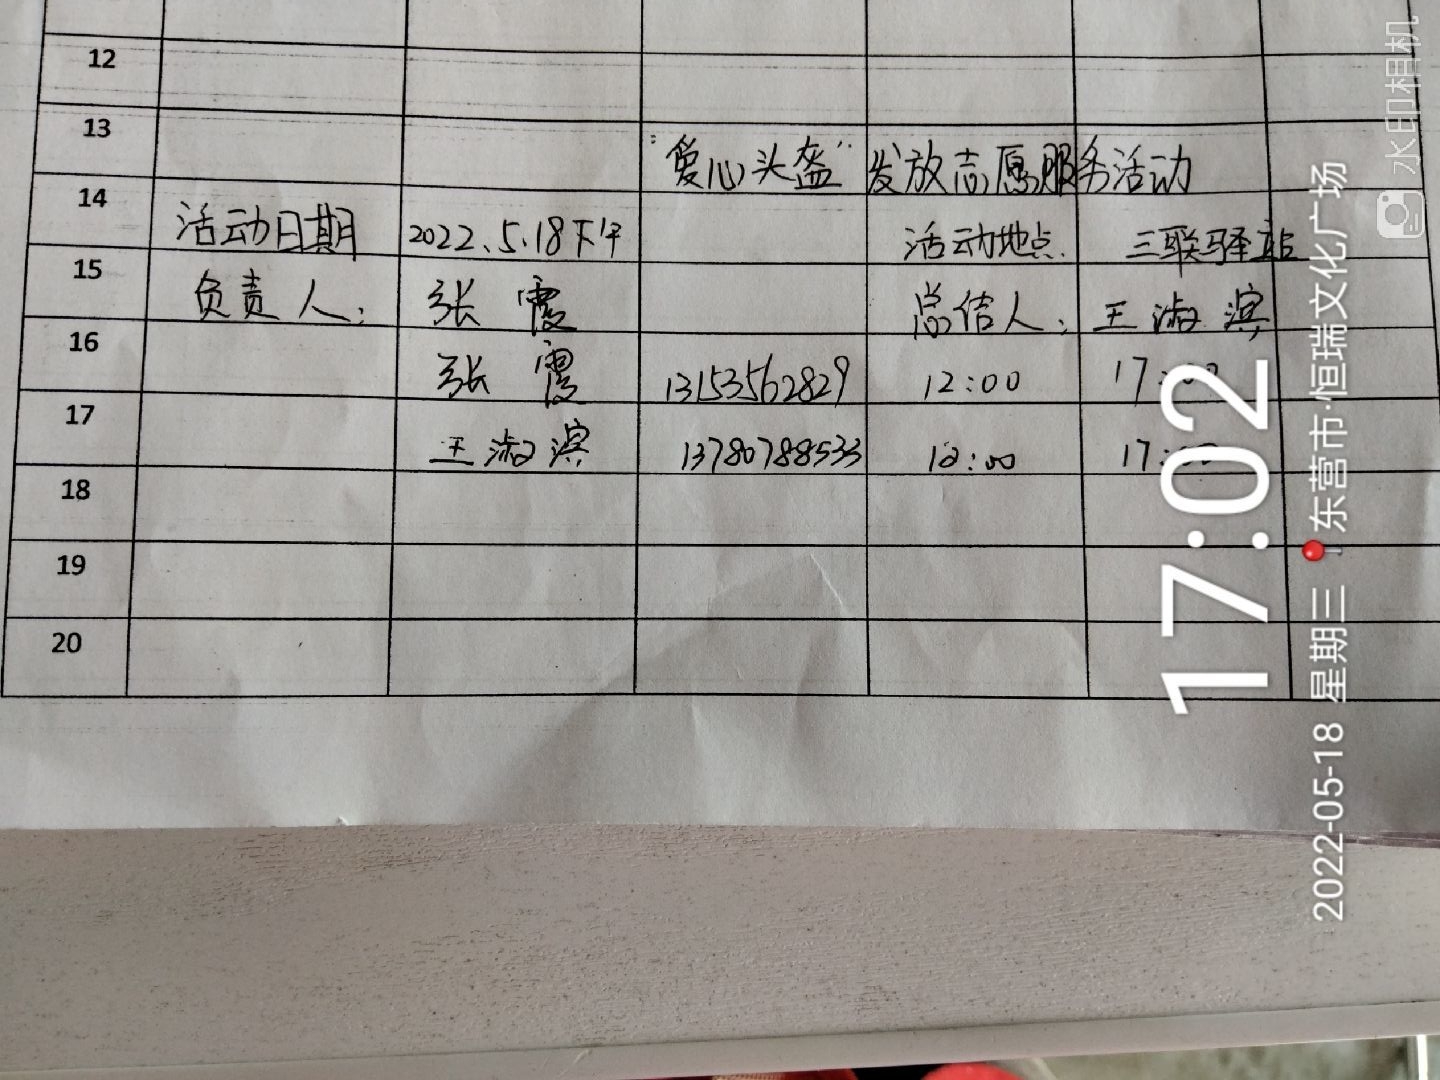 12
13
"爱心头盔"发放志愿服务活动
14 活动日期 2022.5.18下午 活动地点 三联驿站
15 负责人: 张霞 总结人: 王淑滨
16 张霞 13153562829 12:00 17:00
17 王淑滨 13780788533 12:00 17:00
18
19
20
17:02
2022-05-18 星期三 东营市·恒瑞文化广场
水印相机